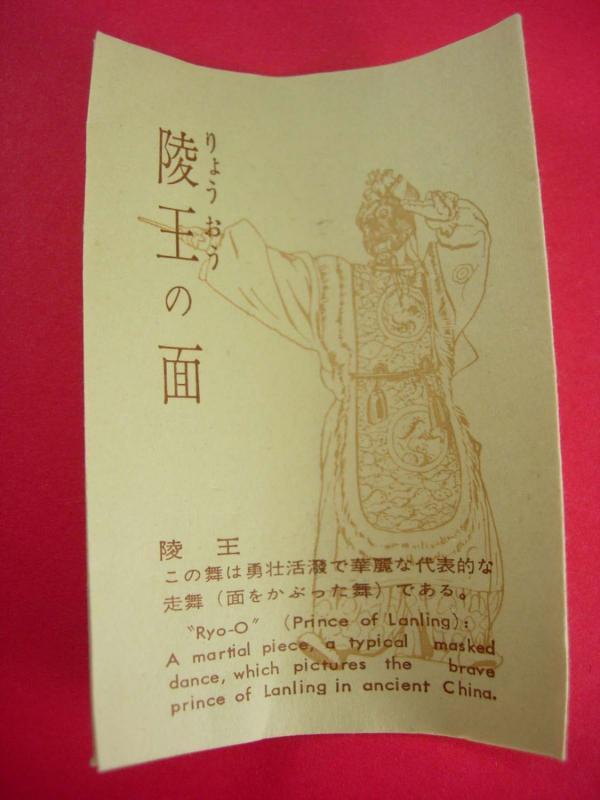 陵王の面
りょうおう
陵 王
この舞は勇壮活潑で華麗な代表的な
走舞（面をかぶった舞）である。
"Ryo-O" (Prince of Lanling):
A martial piece, a typical masked
dance, which pictures the brave
prince of Lanling in ancient China.